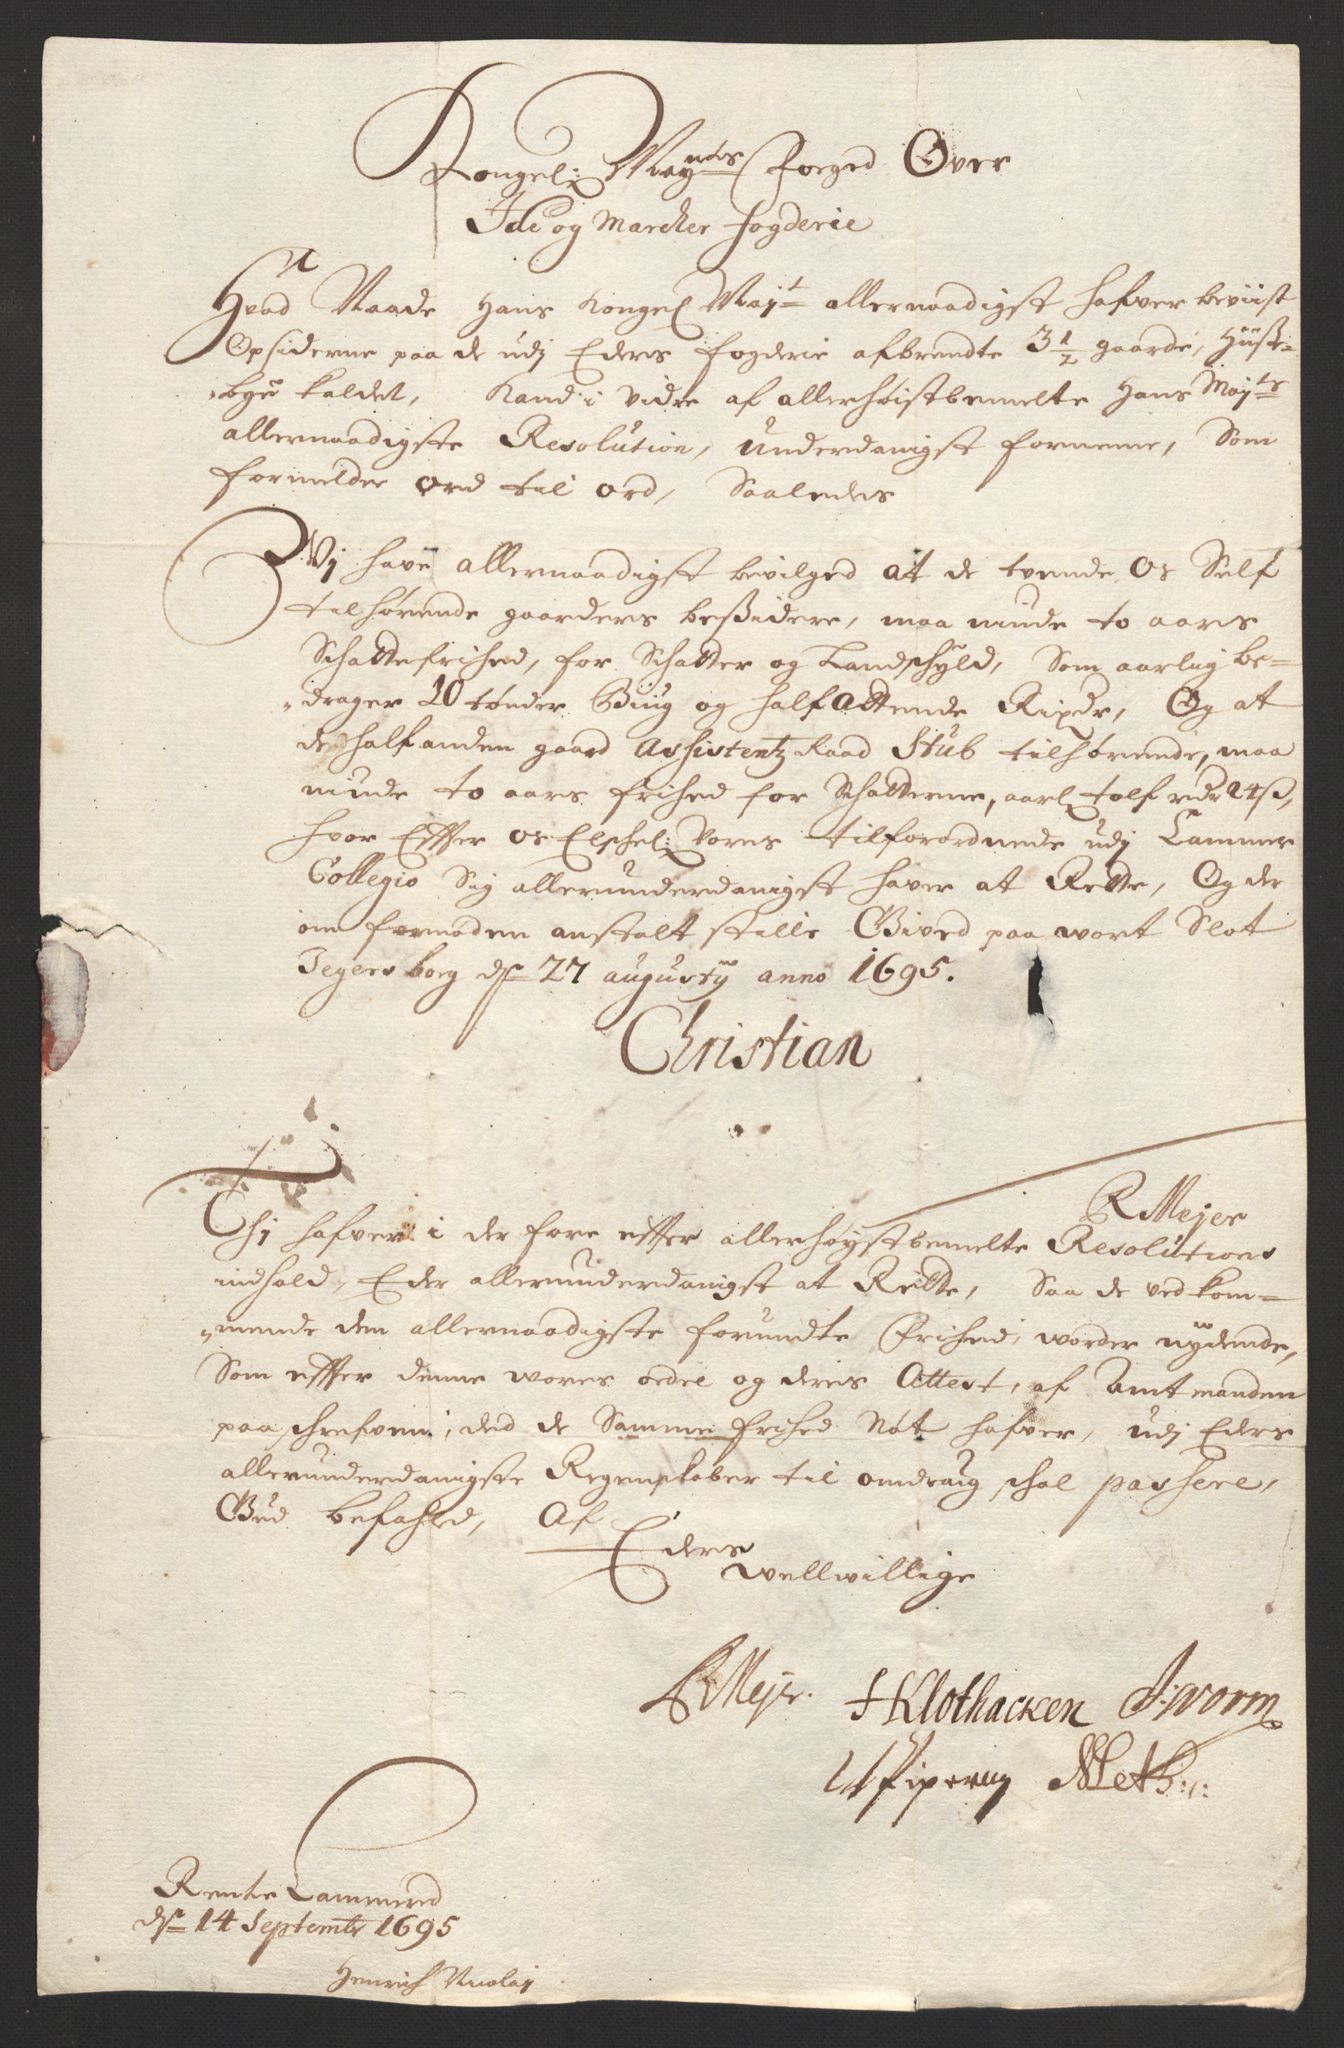 Kongel: Mayts Foged Over
Ide og Marcker fogderie
Hvad Naade Hans Kongel Mayt allernaadigst hafver beviist
Opsiderne paa de udj Eders fogderie afbrendte 3 1/2 gaarde, Hüsse-
bye kaldet, Kand i vidre af allerhöistbemelte Hans Mayts
allernaadigste Resolution, underdanigst fornemme, Som
formelder ord til ord, Saaledes
Vi have allernaadigst bevilged at de tvende Os Self
tilhörende gaarders beßidere, maa niude to aars
Schattefrihed, for Schatter og Landschyld, Som aarlig be-
drager 10 tönder Biug og half attende Rixdr, Og at
de half anden gaard Assistentz Raad Stub tilhörende, maa
niude to aars frihed for Schatterne, aarl: tolf rdr 24 s,
hvor Effter os Elschel: Vores tilforordnede udj Cammer
Collegio Sig allerunderdanigst haver at Rette, Og der
om fornöden anstalt stille Gived paa wort Slot
Jegersborg dn 27 augusty anno 1695.
Christian
R Mejer
Thj hafver i der fore effter allerhöystbemelte Resolutions
indhold, Eder allerunderdanigst at Rette, Saa de ved kom-
mende dem allernaadigste forundte Frihed, worder nydende,
Som effter denne wores ordre og deris Attest, af Amtmanden
paaschrefven, ded de Samme frihed Nøt hafver, udj Eders
allerunderdanigste Regenskaber til omdrag schal passere,
Gud befahled, Af
Eders
wellwillige
R Mejer. H Klothacken J: worm
P Piperung Meth:
Rente Cammered
dn 14 Septembr 1695
Henrich Nicolaj